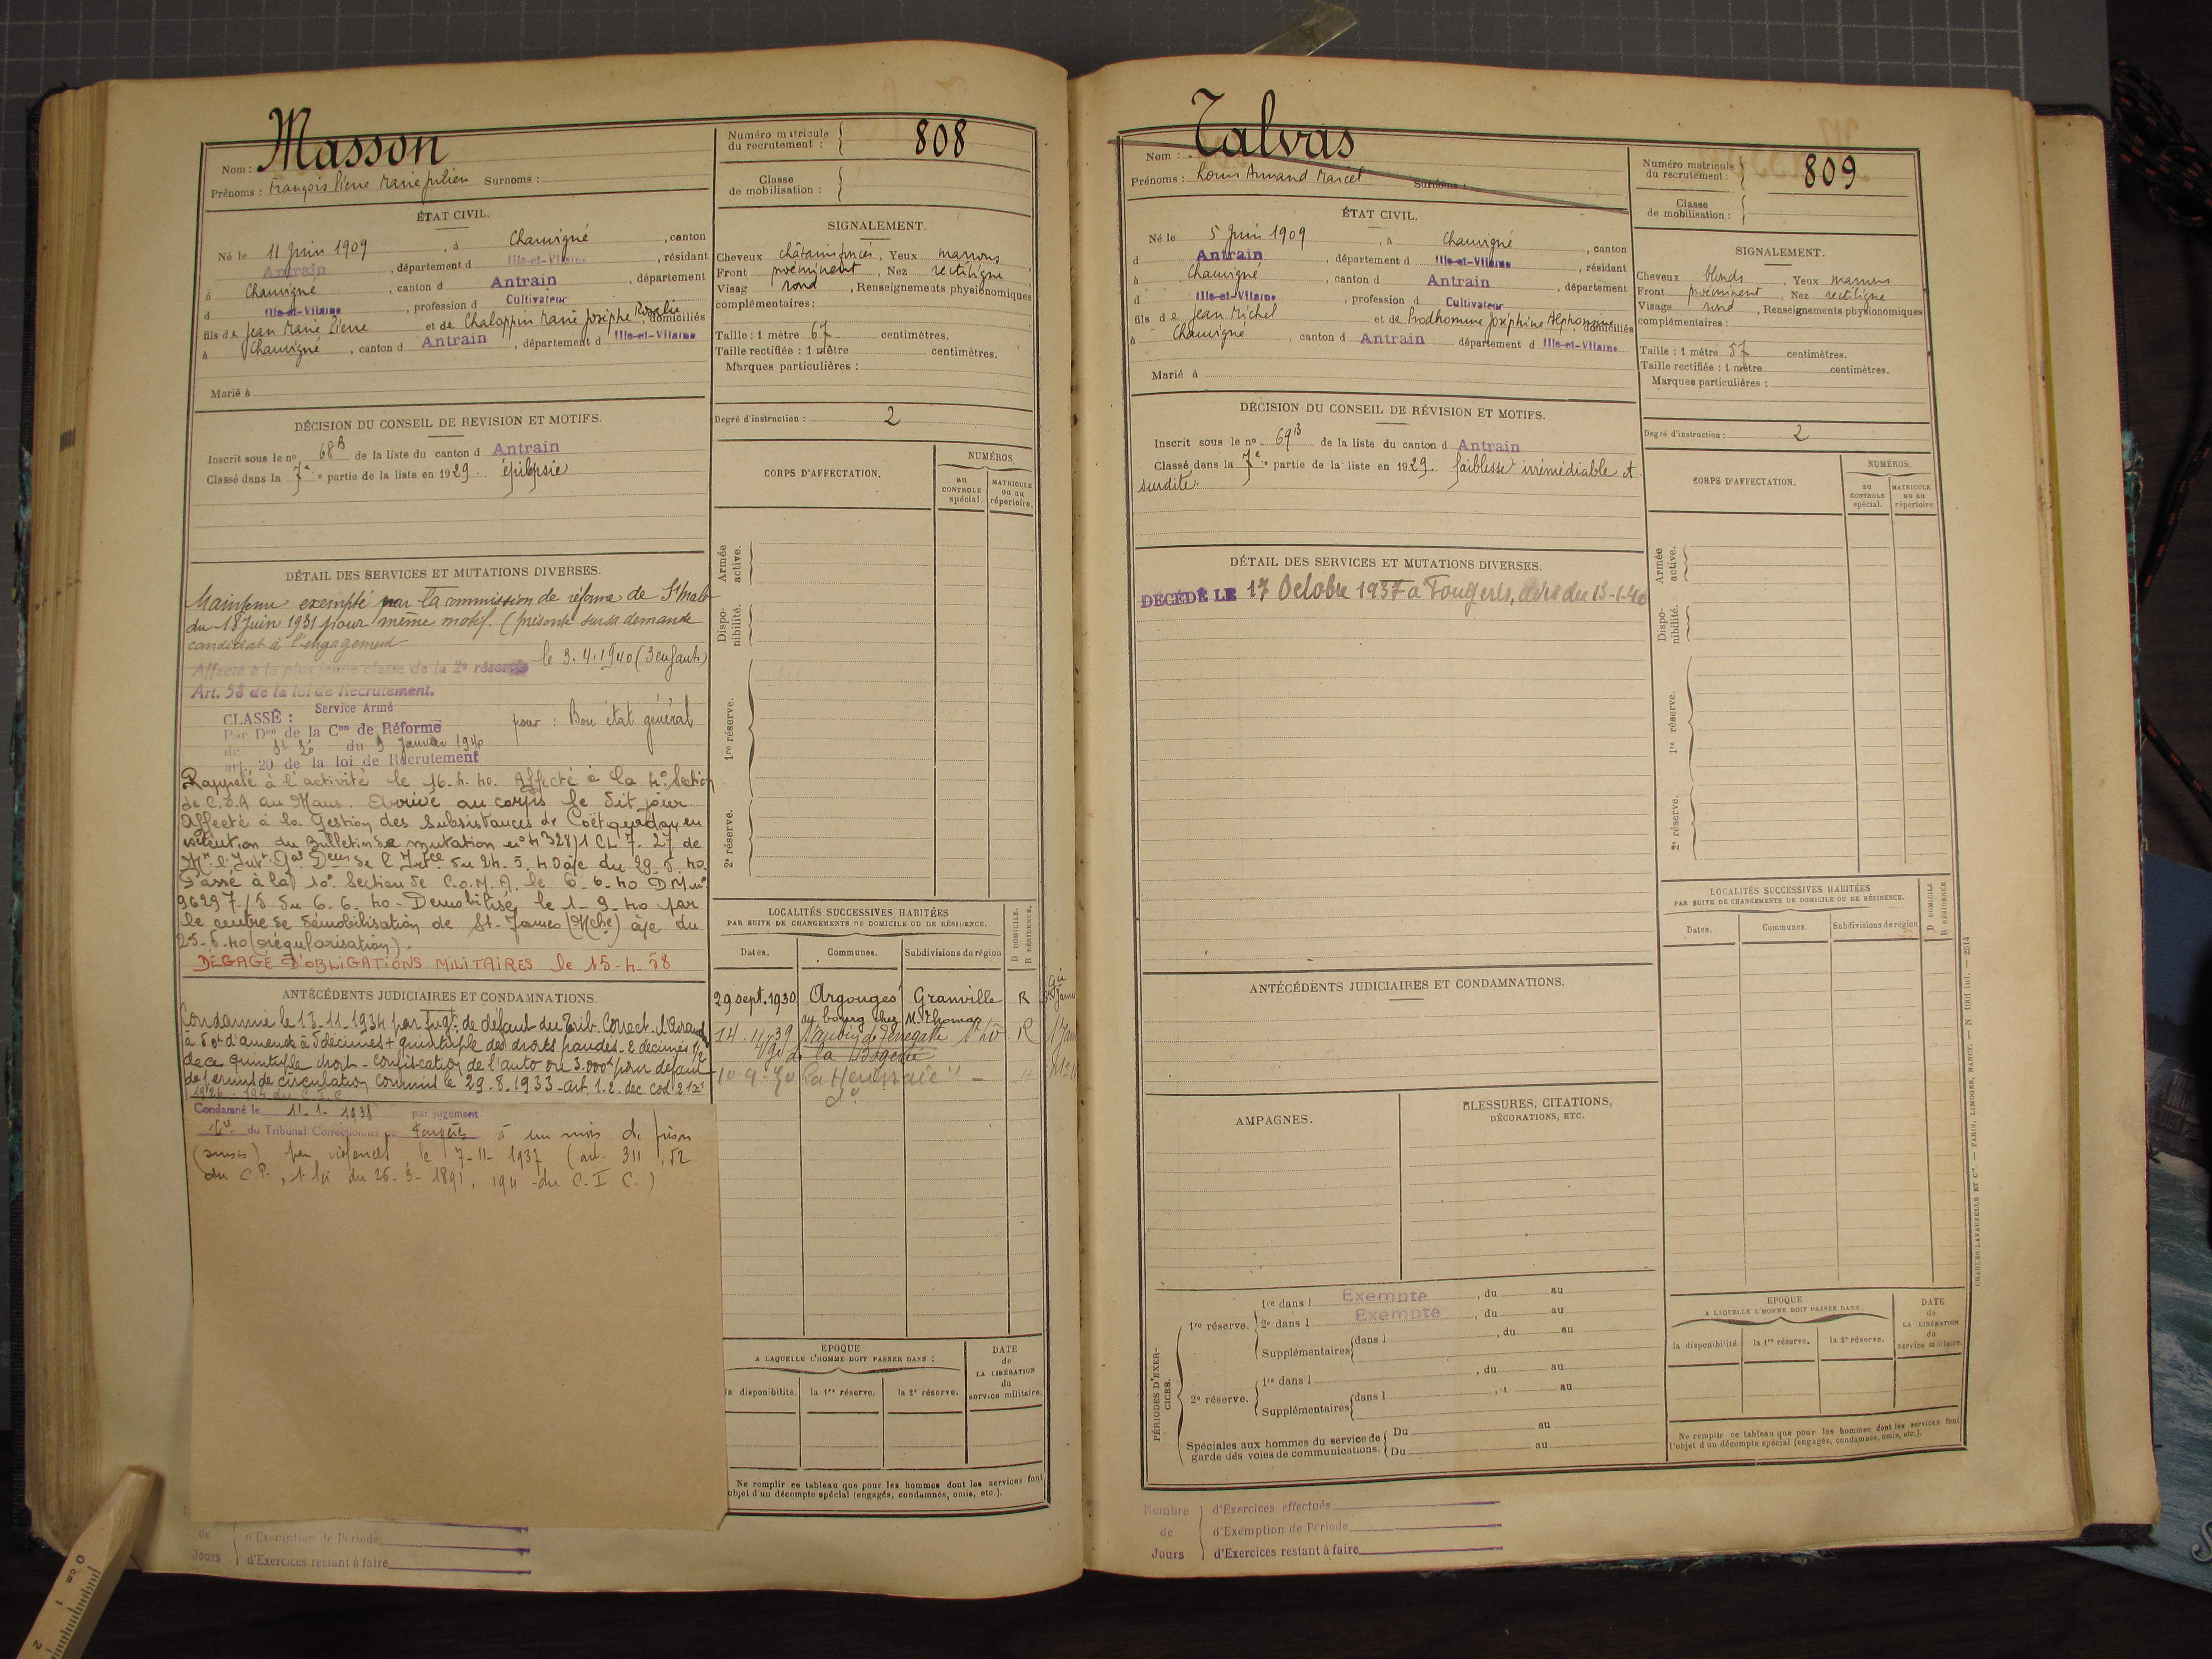 Nom : Masson
Prénoms : François Pierre Marie Julien Surnoms :
Numéro matricule
du recrutement :
808
Classe
de mobilisation :
ÉTAT CIVIL.
Né le 11 Juin 1909, à Chauvigné, canton
Antrain, département d Ille-et-Vilaine, résidant
à Chauvigné, canton d Antrain, département
d Ille-et-Vilaine, profession d Cultivateur
fils de Jean Marie Pierre et de Chaloppin Marie Josèphe Rosalie, domiciliés
à Chauvigné, canton d Antrain, département d Ille-et-Vilaine
Marié à
SIGNALEMENT.
Cheveux châtains foncés, Yeux marrons
Front proéminent, Nez rectiligne
Visag rond, Renseignements physionomiques
complémentaires :
Taille : 1 mètre 67 centimètres.
Taille rectifiée : 1 mètre centimètres.
Marques particulières :
Degré d'instruction : 2
DÉCISION DU CONSEIL DE REVISION ET MOTIFS.
Inscrit sous le no 68 B de la liste du canton d Antrain
Classé dans la 7e partie de la liste en 1929. épilepsie
CORPS D'AFFECTATION.
NUMÉROS
au
CONTROLE
spécial.
MATRICULE
ou au
répertoire.
Armée
active.
Dispo-
nibilité.
1re réserve.
2e réserve.
DÉTAIL DES SERVICES ET MUTATIONS DIVERSES.
Maintenu exempté par la commission de réforme de St Malo
du 18 Juin 1931 pour même motif. (présenté sur sa demande
candidat à l'engagement
Affecté à la plus jeune classe de la 2e réserve le 3.4.1940 (3 enfants)
Art. 58 de la loi de Recrutement.
CLASSÉ : Service Armé
Par Don de la Con de Réforme pour : Bon état général
de St Lô du 9 Janvier 1940
art. 20 de la loi de Recrutement
Rappelé à l'activité le 16.4.40. Affecté à la 4e Section
de C.O.A au Mans. Arrivé au corps le dit jour.
Affecté à la Gestion des Subsistances de Coëtquidan en
exécution du Bulletin de mutation no 4328/1 CL. 7. 27 de
Mr l'Intt Gal Deur de l'Intce du 24.5.40 àjc du 29.5.40.
Passé à la 10e Section de C.O.M.A. le 6-6-40 DM no
96297/5 du 6.6.40 - Démobilisé le 1-9-40 par
le centre de démobilisation de St-James (Mche) àjc du
25-6-40 (régularisation).
DÉGAGÉ D'OBLIGATIONS MILITAIRES le 15-4-58
ANTÉCÉDENTS JUDICIAIRES ET CONDAMNATIONS.
Condamné le 13-11-1934 par Jugt de défaut du Trib. Correct. d'Avranches
à 5 f d'amende à 5 décimes + quintuple des droits fraudés - 2 décimes 1/2
de ce quintuple droit - confiscation de l'auto ou 3.000 f pour défaut
de permis de circulation commis le 29.8.1933 - art. 1.2. dec. cod. 21 Xe
1926 - 194 du C.I.C.
Condamné le 11-1-1938 par jugement
du Tribunal Correctionnel de Fougères à un mois de prison
(sursis) pour violences le 7-11-1937 (art. 311, 52
du C.P., 1 loi du 26-3-1891, 194 du C.I.C.)
LOCALITÉS SUCCESSIVES HABITÉES
PAR SUITE DE CHANGEMENTS DE DOMICILE OU DE RÉSIDENCE.
D DOMICILE.
R RÉSIDENCE.
Dates. Communes. Subdivisions de région
29 sept. 1930 Argouges Granville R
au bourg chez M. Thomas
14.11.39 St Aubin de Terregatte St Lô R
10-9-40
EPOQUE
A LAQUELLE L'HOMME DOIT PASSER DANS :
la disponibilité. la 1re réserve. la 2e réserve.
DATE
de
LA LIBÉRATION
du
service militaire.
Ne remplir ce tableau que pour les hommes dont les services font
objet d'un décompte spécial (engagés, condamnés, omis, etc.).
de
Jours
d'Exemption de Période
d'Exercices restant à faire
Nom : Talvas
Prénoms : Louis Armand Marcel Surnoms :
Numéro matricule
du recrutement :
809
Classe
de mobilisation :
ÉTAT CIVIL.
Né le 5 Juin 1909, à Chauvigné, canton
d Antrain, département d Ille-et-Vilaine, résidant
à Chauvigné, canton d Antrain, département
d Ille-et-Vilaine, profession d Cultivateur
fils de Jean Michel et de Prodhomme Joséphine Alphonsine, domiciliés
à Chauvigné, canton d Antrain département d Ille-et-Vilaine
Marié à
SIGNALEMENT.
Cheveux blonds, Yeux marrons
Front proéminent, Nez rectiligne
Visage rond, Renseignements physionomiques
complémentaires :
Taille : 1 mètre 57 centimètres.
Taille rectifiée : 1 mètre centimètres.
Marques particulières :
Degré d'instruction : 2
DÉCISION DU CONSEIL DE RÉVISION ET MOTIFS.
Inscrit sous le no 69 B de la liste du canton d Antrain
Classé dans la 7e partie de la liste en 1929. faiblesse irrémédiable et
surdité.
CORPS D'AFFECTATION.
NUMÉROS.
au
CONTROLE
spécial.
MATRICULE
ou au
répertoire
Armée
active.
Dispo-
nibilité.
1re réserve.
2e réserve.
DÉTAIL DES SERVICES ET MUTATIONS DIVERSES.
DÉCÉDÉ LE 17 Octobre 1937 à Fougères, avis du 13-1-40
ANTÉCÉDENTS JUDICIAIRES ET CONDAMNATIONS.
LOCALITÉS SUCCESSIVES HABITÉES
PAR SUITE DE CHANGEMENTS DE DOMICILE OU DE RÉSIDENCE.
D DOMICILE
R RÉSIDENCE
Dates. Communes. Subdivisions de région
AMPAGNES.
BLESSURES, CITATIONS,
DÉCORATIONS, ETC.
PÉRIODES D'EXER-
CICES.
1re réserve.
1re dans l Exempte, du au
2e dans l Exempte, du au
Supplémentaires dans l, du au
du au
2e réserve.
1re dans l
Supplémentaires dans l au
Spéciales aux hommes du service de
garde des voies de communications.
Du au
Du au
EPOQUE
A LAQUELLE L'HOMME DOIT PASSER DANS :
la disponibilité. la 1re réserve. la 2e réserve.
DATE
de
LA LIBÉRATION
du
service militaire.
Ne remplir ce tableau que pour les hommes dont les services font
l'objet d'un décompte spécial (engagés, condamnés, omis, etc.).
Nombre
de
Jours
d'Exercices effectués
d'Exemption de Période
d'Exercices restant à faire
CHARLES-LAVAUZELLE ET Cie. — PARIS, LIMOGES, NANCY. — N 1001 — 2514